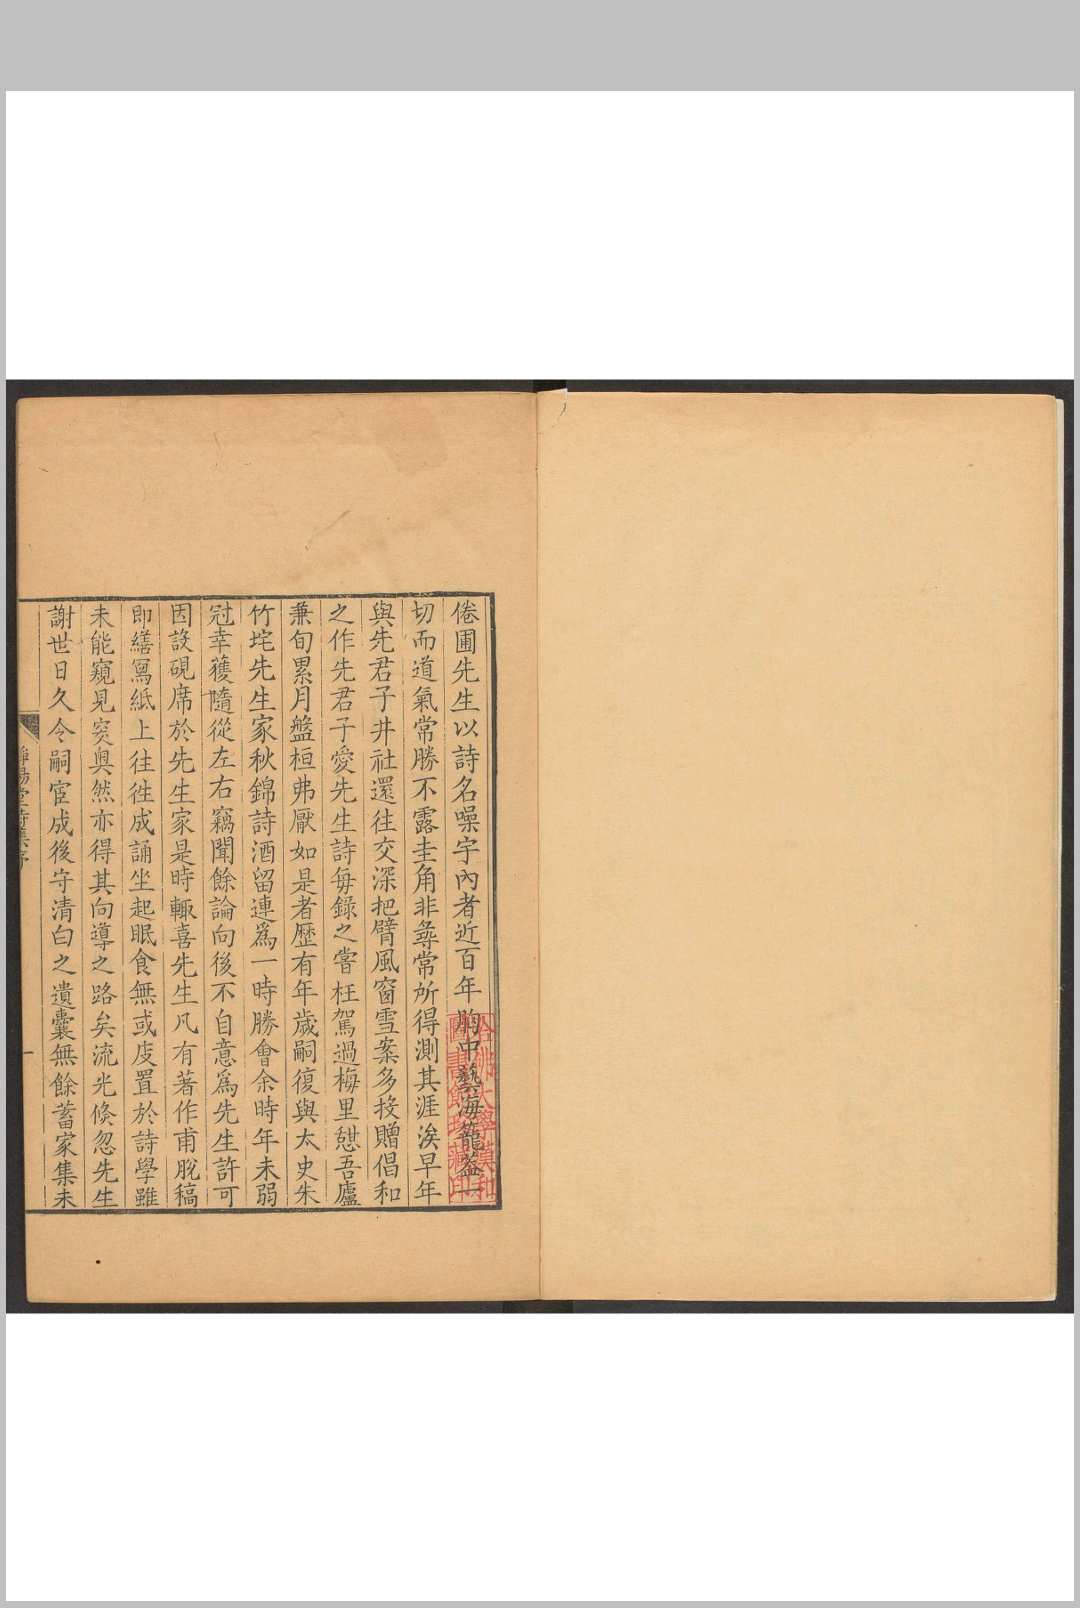 倦圃先生以詩名噪宇內者近百年胸中藝海籠盖一
切而道氣常勝不露圭角非尋常所得測其涯涘早年
與先君子井社還往交深把臂風窗雪案多投贈倡和
之作先君子愛先生詩每錄之嘗枉駕過梅里憇吾廬
兼旬累月盤桓弗厭如是者歷有年歲嗣復與太史朱
竹垞先生家秋錦詩酒留連爲一時勝會余時年未弱
冠幸獲隨從左右竊聞餘論向後不自意爲先生許可
因設硯席於先生家是時輙喜先生凡有著作甫脫稿
即繕寫紙上往徃成誦坐起眠食無或庋置於詩學雖
未能窺見突奧然亦得其向導之路矣流光倏忽先生
謝世日久令嗣宦成後守清白之遺囊無餘蓄家集未
靜惕堂詩集序
一
哈佛大學漢和
圖書館珍藏印